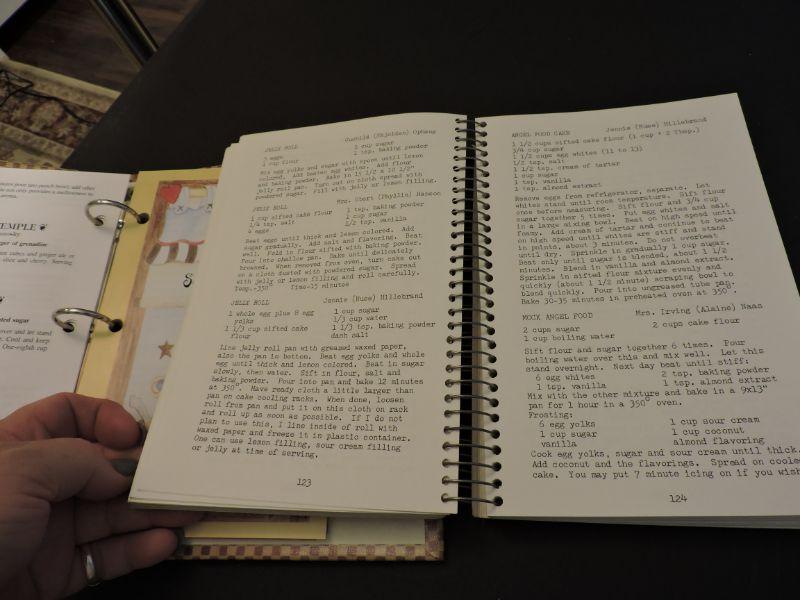 before pour into punch bowl; add other
TEMPLE
ger of grenadine
nice and cherry. Serving
ted sugar
over and let stand
Cool and keep
One-eighth cup
S
JELLY ROLL
5 eggs
1 cup flour
1 cup sugar
1 tsp. baking powder
Mix egg yolks and sugar with spoon until lemon
colored. Add beaten egg whites. Add flour
and baking powder. Bake in 15 1/2 x 10 1/2"
jelly roll pan. Turn out on cloth spread with
powdered sugar. Fill with jelly or lemon filling.
JELLY ROLL
Mrs. Stert (Phyllis) Hanson
1 cup sifted cake flour
1/4 tsp. salt
1 tsp. baking powder
1 cup sugar
1/2 tsp. vanilla
Beat eggs until thick and lemon colored. Add
sugar gradually. Add salt and flavoring. Beat
well. Fold in flour sifted with baking powder.
Pour into shallow pan. Bake until delicately
browned. When removed from oven, turn cake out
on a cloth dusted with powdered sugar. Spread
with jelly or lemon filling and roll carefully.
Temp.-350° Time-15 minutes
JELLY ROLL
Jennie (Ruse) Hillebrand
1 whole egg plus 8 egg
yolks
1 1/3 cup sifted cake
flour
1 cup sugar
1/3 cup water
1 1/3 tsp. baking powder
dash salt
Line jelly roll pan with greased waxed paper,
also the pan is bottom. Beat egg yolks and whole
egg until thick and lemon colored. Beat in sugar
slowly, then water. Sift in flour, salt and
baking powder. Pour into pan and bake 12 minutes
at 350°. Have ready cloth a little larger than
pan on cake cooling racks. When done, loosen
roll from pan and put it on this cloth on rack
and roll up as soon as possible. If I do not
plan to use this, I line inside of roll with
waxed paper and freeze it in plastic container.
One can use lemon filling, sour cream filling
or jelly at time of serving.
123
ANGEL FOOD CAKE
Jennie (Ruse) Hillebrand
1 1/2 cups sifted cake flour (1 cup + 2 Tbsp.)
3/4 cup sugar
1 1/2 cups egg whites (11 to 13)
1/2 tsp. salt
1 1/2 tsp. cream of tartar
1 cup sugar
1 tsp. vanilla
1 tsp. almond extract
Remove eggs from refrigerator, separate. Let
whites stand until room temperature. Sift flour
once before measuring. Sift flour and 3/4 cup
sugar together 5 times. Put egg whites and salt
in a large mixing bowl. Beat on high speed until
foamy. Add cream of tartar and continue to beat
on high speed until whites are stiff and stand
in points, about 3 minutes. Do not overbeat
until dry. Sprinkle in gradually 1 cup sugar.
Beat only until sugar is blended, about 1 1/2
minutes. Blend in vanilla and almond extract.
Sprinkle in sifted flour mixture evenly and
quickly (about 1 1/2 minute) scraping bowl to
blend quickly. Pour into ungreased tube pan.
Bake 30-35 minutes in preheated oven at 350°.
MOCK ANGEL FOOD
Mrs. Irving (Alaine) Naas
2 cups sugar
1 cup boiling water
2 cups cake flour
Sift flour and sugar together 6 times. Pour
boiling water over this and mix well. Let this
stand overnight. Next day beat until stiff:
6 egg whites
1 tsp. vanilla
2 tsp. baking powder
1 tsp. almond extract
Mix with the other mixture and bake in a 9x13"
pan for 1 hour in a 350° oven.
Frosting:
6 egg yolks
1 cup sugar
vanilla
1 cup sour cream
1 cup coconut
almond flavoring
Cook egg yolks, sugar and sour cream until thick.
Add coconut and the flavorings. Spread on coole
cake. You may put 7 minute icing on if you wish
124